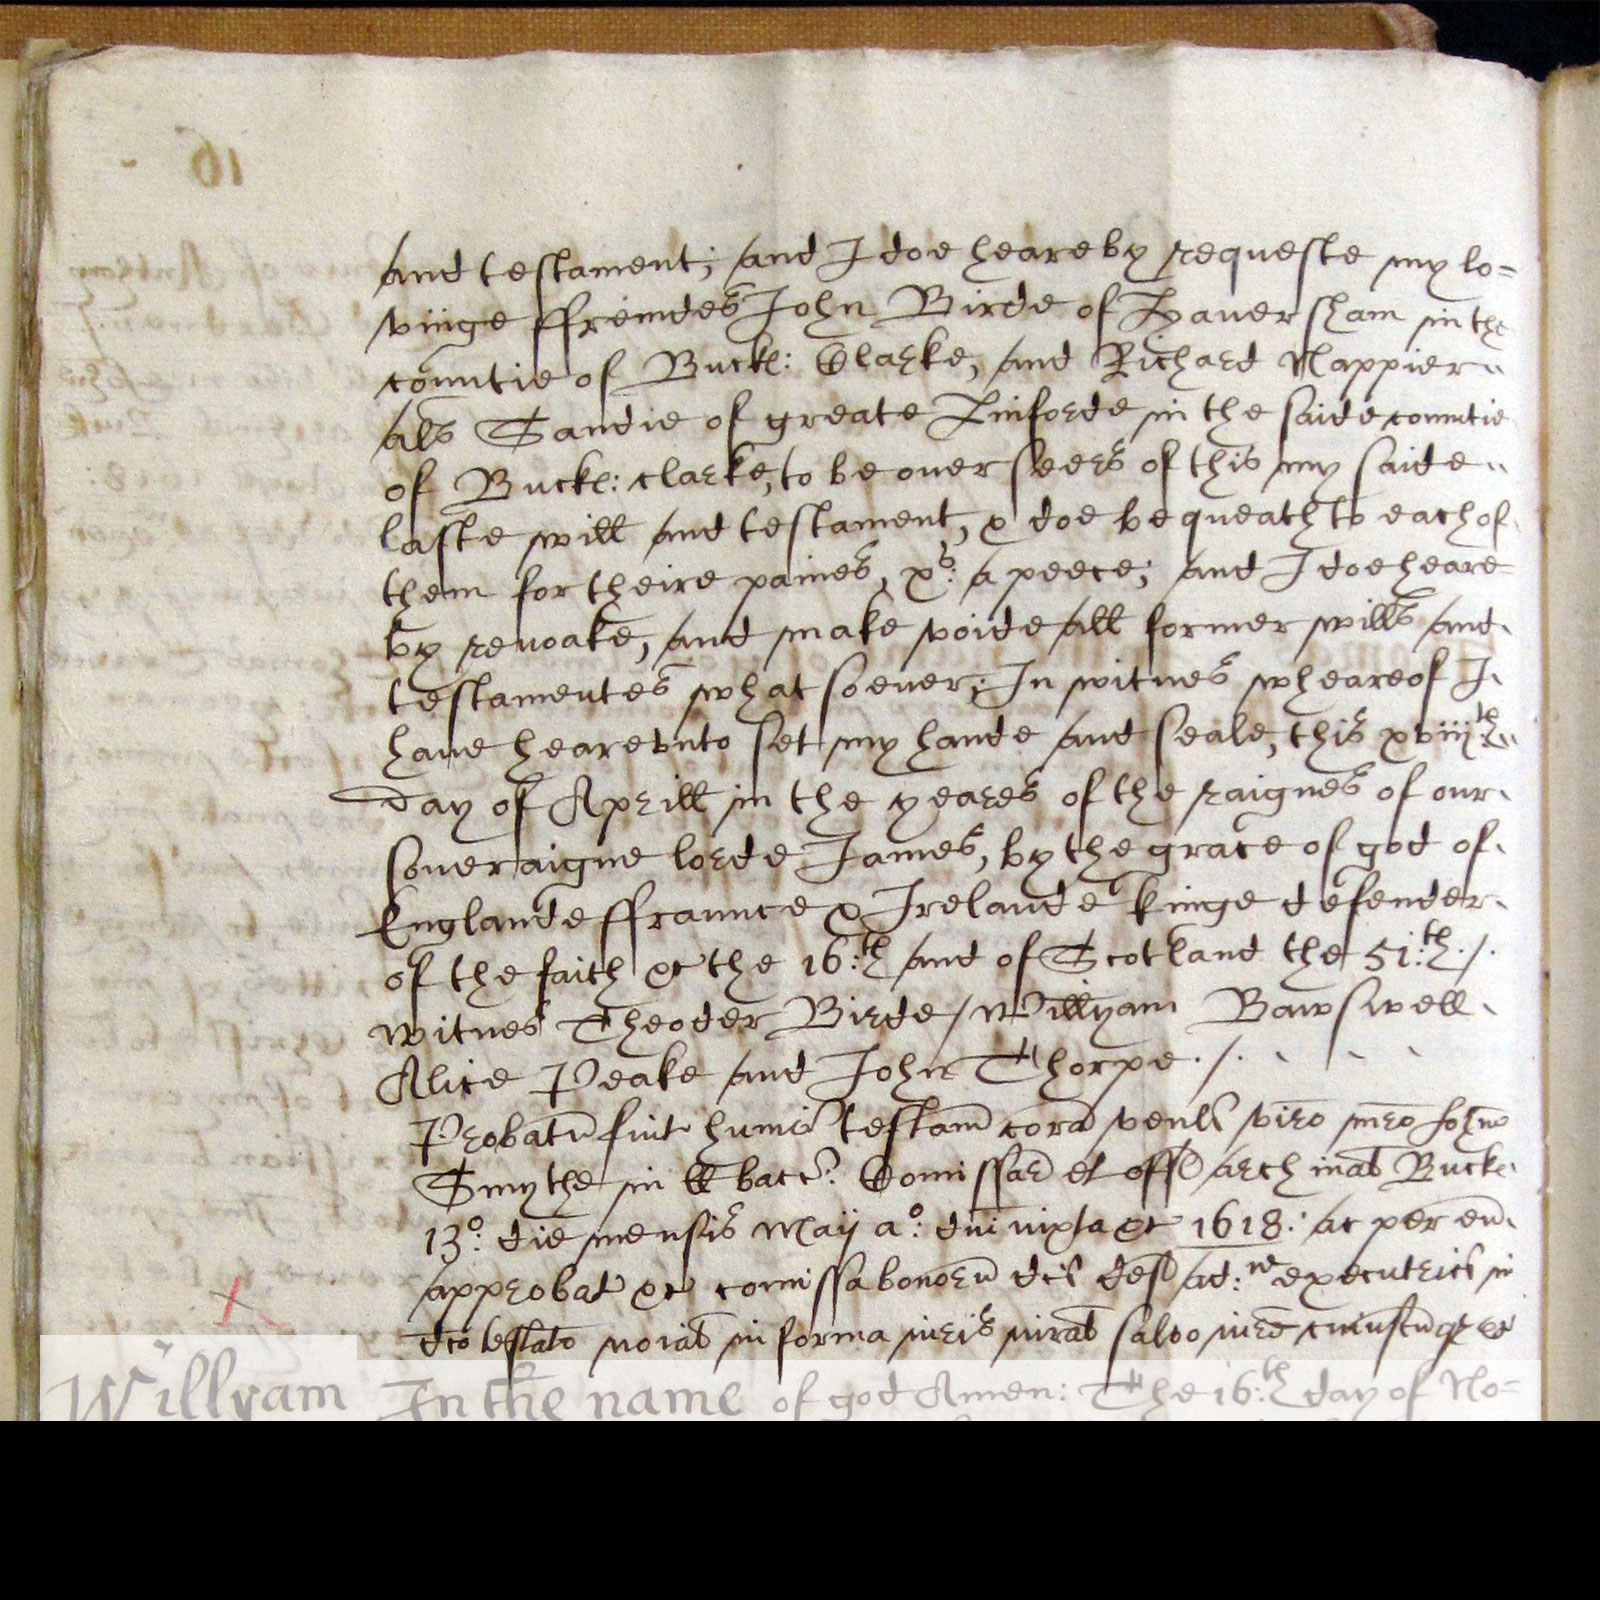 and testament; and I doe heareby requeste my lo=
vinge ffreindes John Birde of Haversham in the
countie of Buck: Clarke, and Richard Nappier
als Sandie of greate Linforde in the saide countie
of Buck: clarke, to be overseers of this my saide
laste will and testament, & doe bequeath to each of
them for theire paines, xs: a peece; and I doe heare=
by revoake, and make voide all former wills and
testamentes whatsoever; In witnes wheareof I
have hearevnto set my hande and seale, this xviijth
day of Aprill in the yeares of the raignes of our
soveraigne lorde James, by the grace of god of
Englande ffraunce & Irelande kinge defender
of the faith &c the 16:th and of Scotland the 51:th ./.
witnes Theoder Birde / Willyam Bawswell
Alice Peake and John Thorpe ./.
Probatu fuit humoi testam cora venli viro mro Johne
Smythe in ll bacc: Comissar et offl archinat Buck
13o: die mensis Maij ao: dni iuxta &c 1618: ac per eu
approbat &c comissa bonoru dci def ad: executrici in
dco testato noiat in forma iuris iurat salvo iure cuiuscuqz &c
Willyam In the name of god Amen: The 16:th day of No=